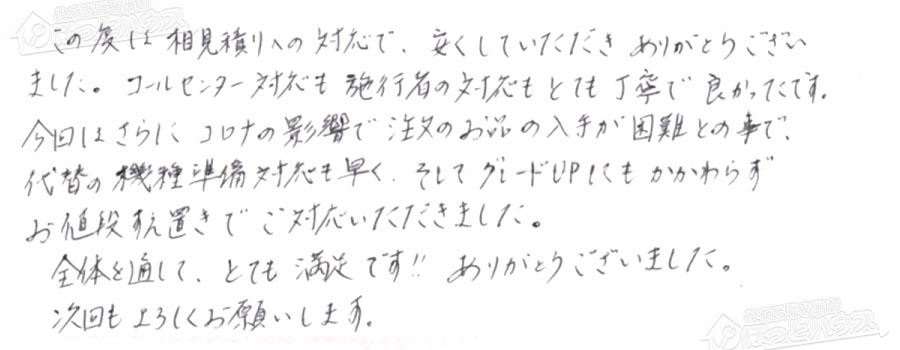 この度は相見積りへの対応で、安くしていただきありがとうござい
ました。コールセンター対応も施行者の対応もとても丁寧で良かったです。
今回はさらにコロナの影響で注文のお品の入手が困難との事で、
代替の機種準備対応も早く、そしてグレードUPにもかかわらず
お値段すえ置きでご対応いただきました。
全体を通して、とても満足です!! ありがとうございました。
次回もよろしくお願いします。
ほっとハウス
ほっとハウス